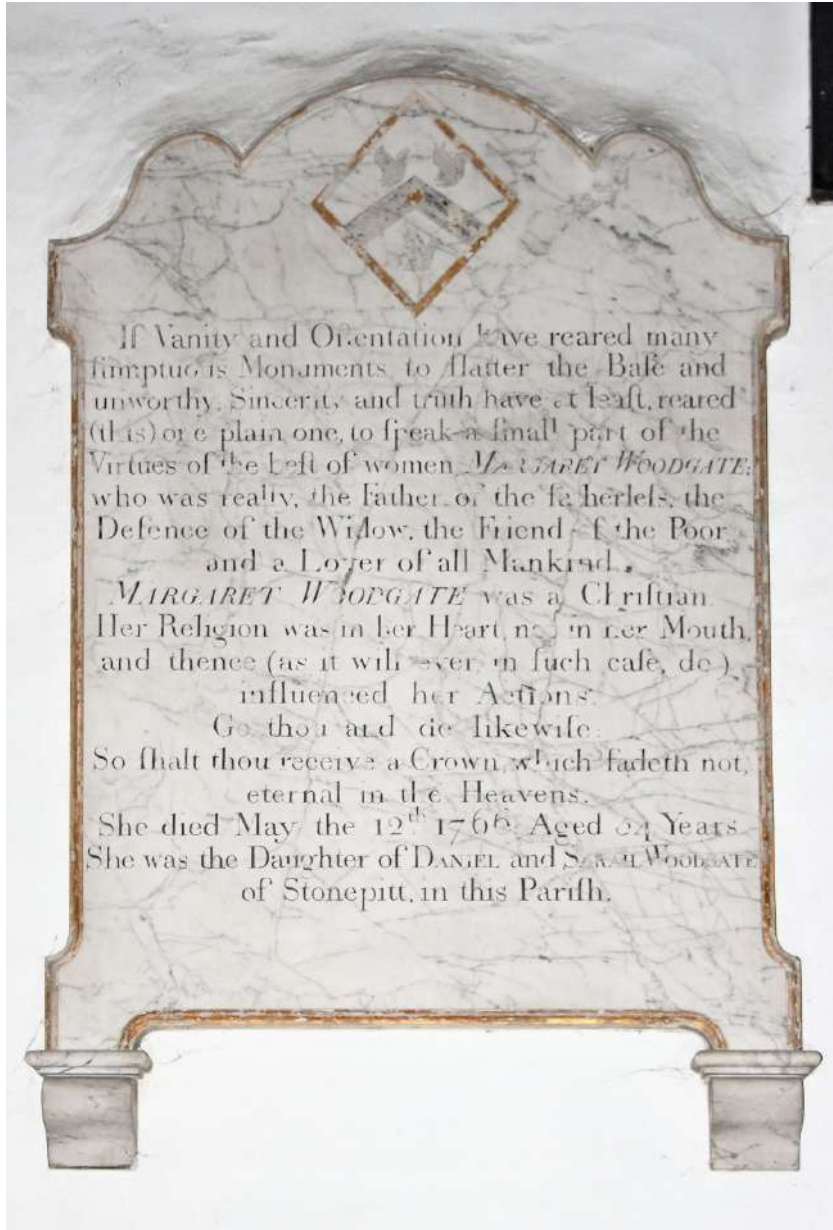 If Vanity and Oſtentation have reared many
ſumptuous Monuments, to flatter the Baſe and
unworthy, Sincerity and truth have at leaſt, reared
(this) one plain one, to ſpeak a ſmall part of the
Virtues of the beſt of women MARGARET WOODGATE:
who was really, the Father of the fatherleſs, the
Defence of the Widow, the Friend of the Poor,
and a Lover of all Mankind.
MARGARET WOODGATE was a Chriſtian.
Her Religion was in her Heart, not in her Mouth,
and thence (as it will ever, in ſuch caſe, do)
influenced her Actions.
Go thou and do likewiſe.
So ſhalt thou receive a Crown, which fadeth not,
eternal in the Heavens.
She died May the 12th 1766. Aged Years
She was the Daughter of DANIEL and SARAH WOODGATE
of Stonepitt, in this Pariſh.